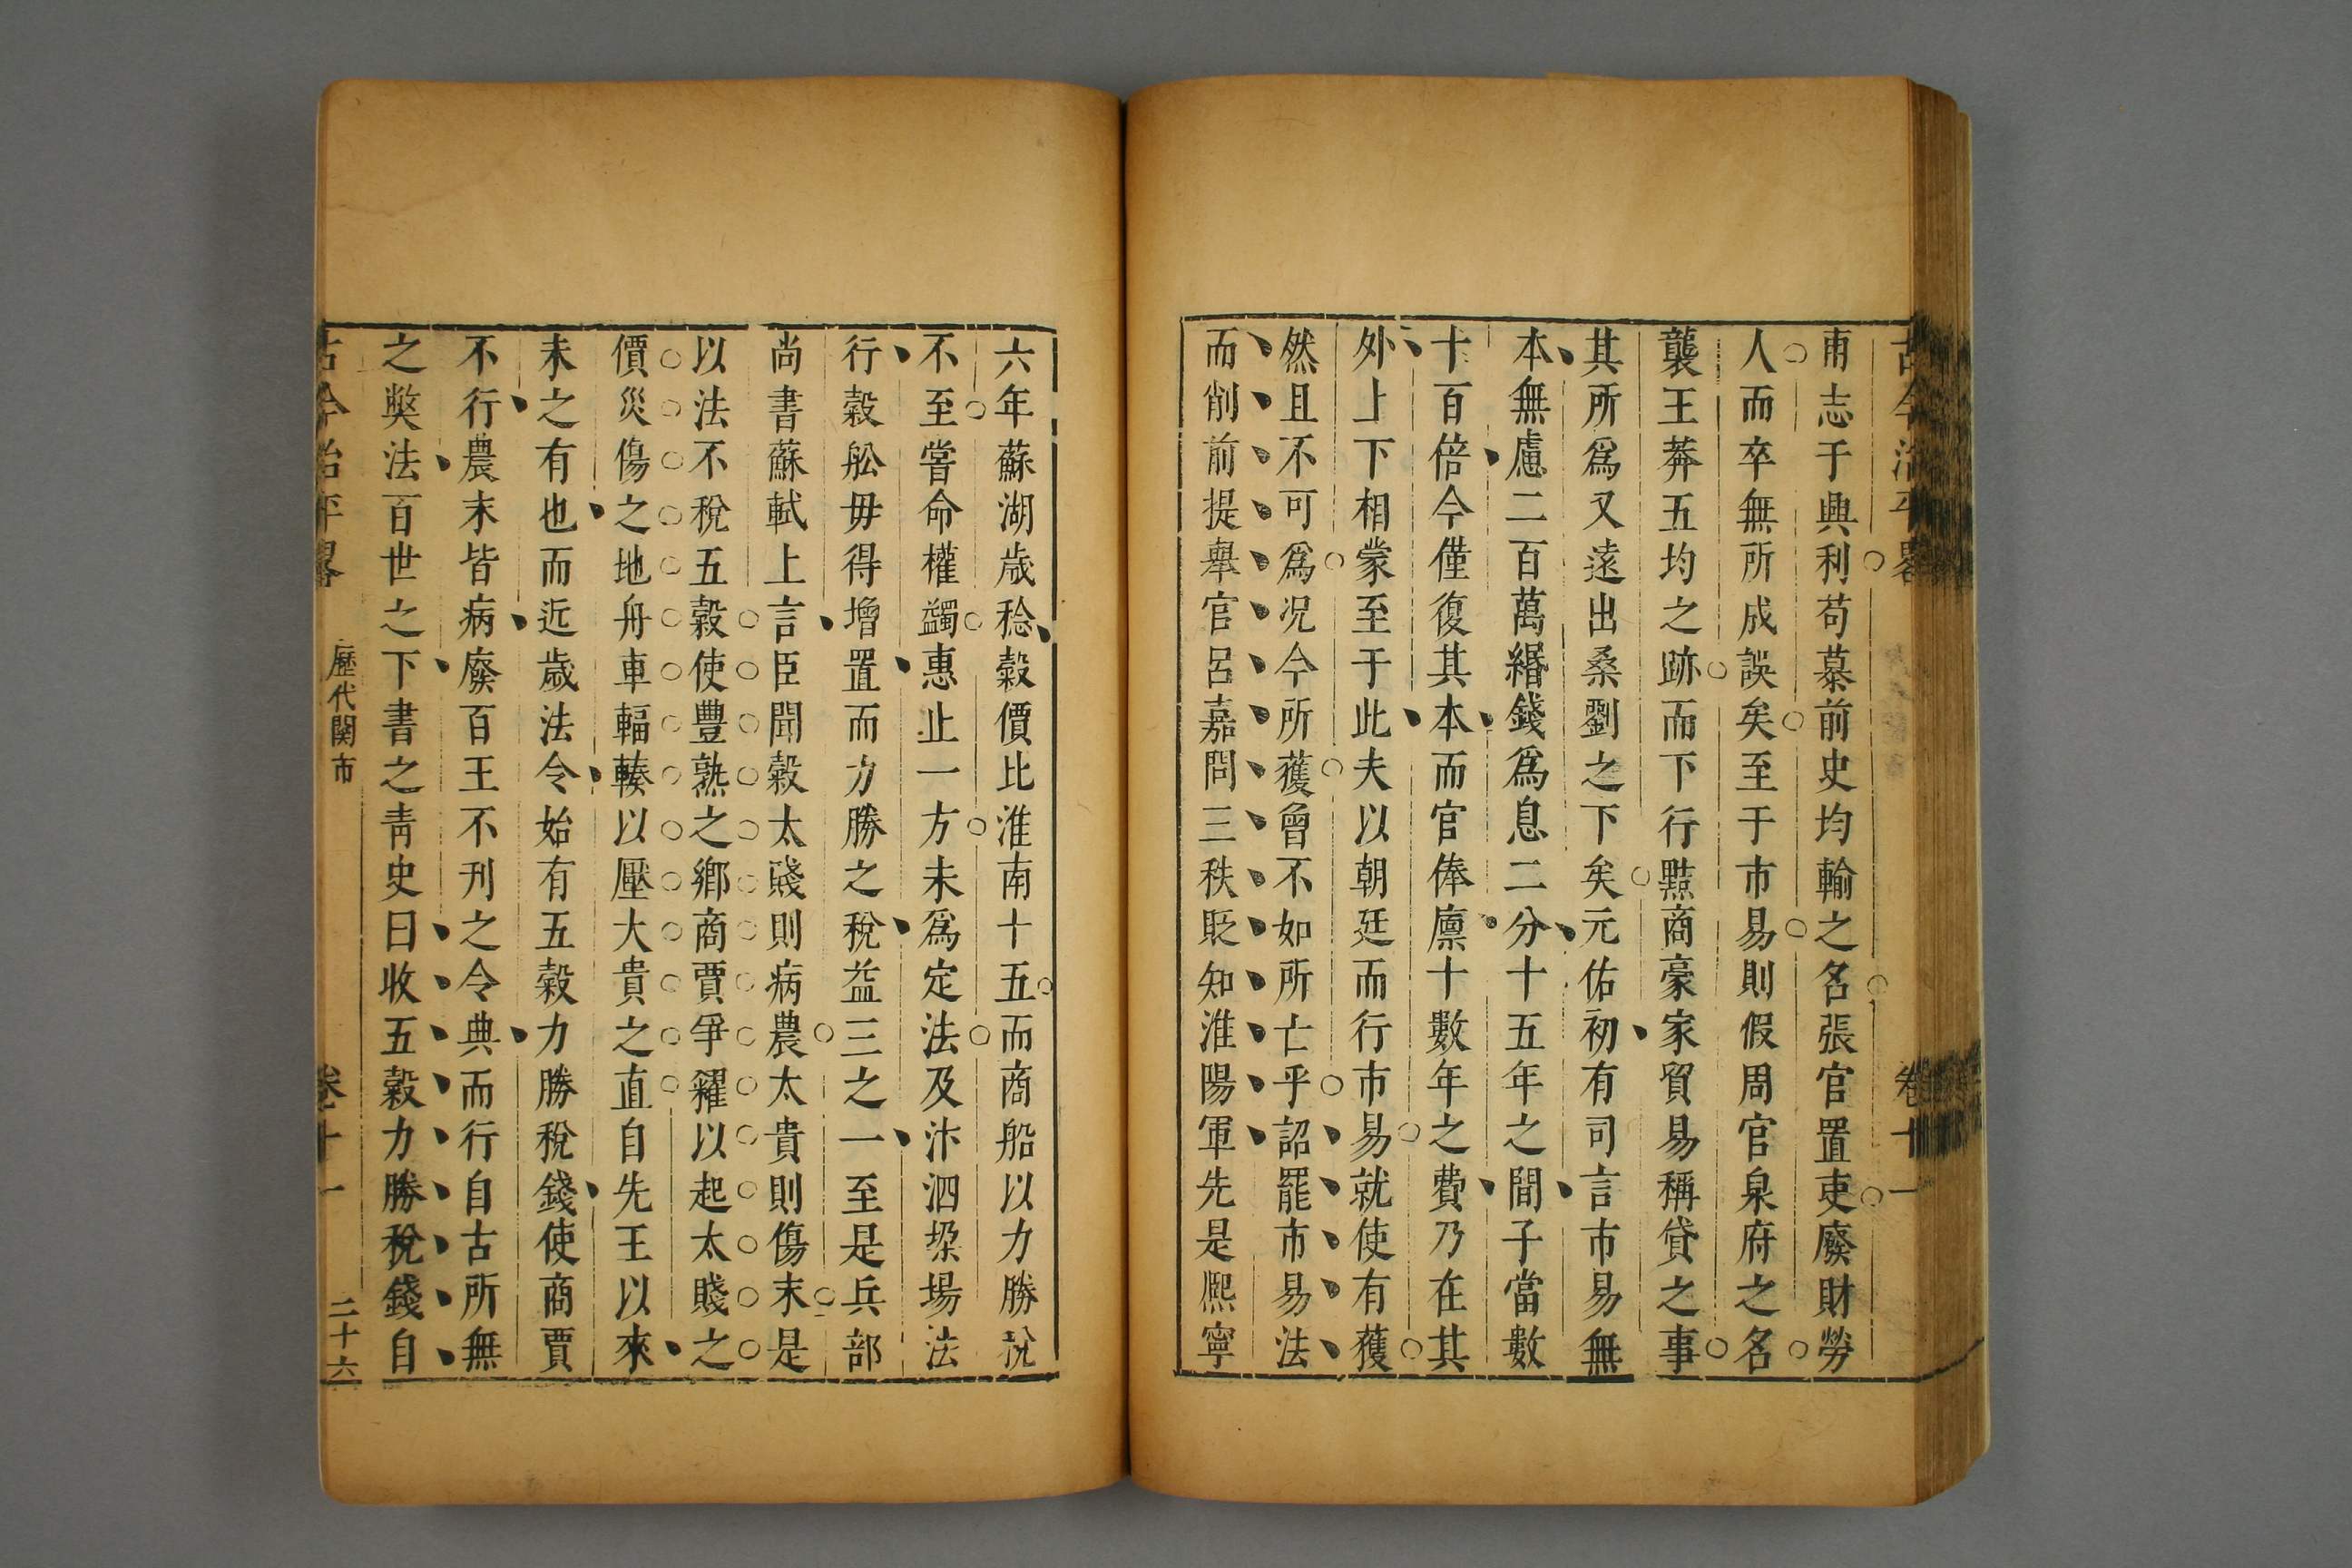 古今治平畧
卷十一
甫志于興利苟慕前史均輸之名張官置吏廢財勞
人而卒無所成誤矣至于市易則假周官泉府之名
襲王莽五均之跡而下行黠商豪家貿易稱貸之事
其所爲又遠出桑劉之下矣元佑初有司言市易無
本無慮二百萬緡錢爲息二分十五年之間子當數
十百倍今僅復其本而官俸廩十數年之費乃在其
外上下相蒙至于此夫以朝廷而行市易就使有獲
然且不可爲况今所獲曾不如所亡乎詔罷市易法
而削前提舉官呂嘉問三秩貶知淮陽軍先是熈寧
六年蘇湖歲稔穀價比淮南十五而商船以力勝稅
不至嘗命權蠲惠止一方未爲定法及汴泗垜場法
行穀舩毋得增置而力勝之稅益三之一至是兵部
尚書蘇軾上言臣聞穀太賤則病農太貴則傷末是
以法不稅五穀使豊熟之鄉商賈爭糴以起太賤之
價災傷之地舟車輻輳以壓大貴之直自先王以來
未之有也而近歲法令始有五穀力勝稅錢使商賈
不行農末皆病廢百王不刊之令典而行自古所無
之獘法百世之下書之青史曰收五穀力勝稅錢自
古今治平畧
歷代関市
卷十一
二十六